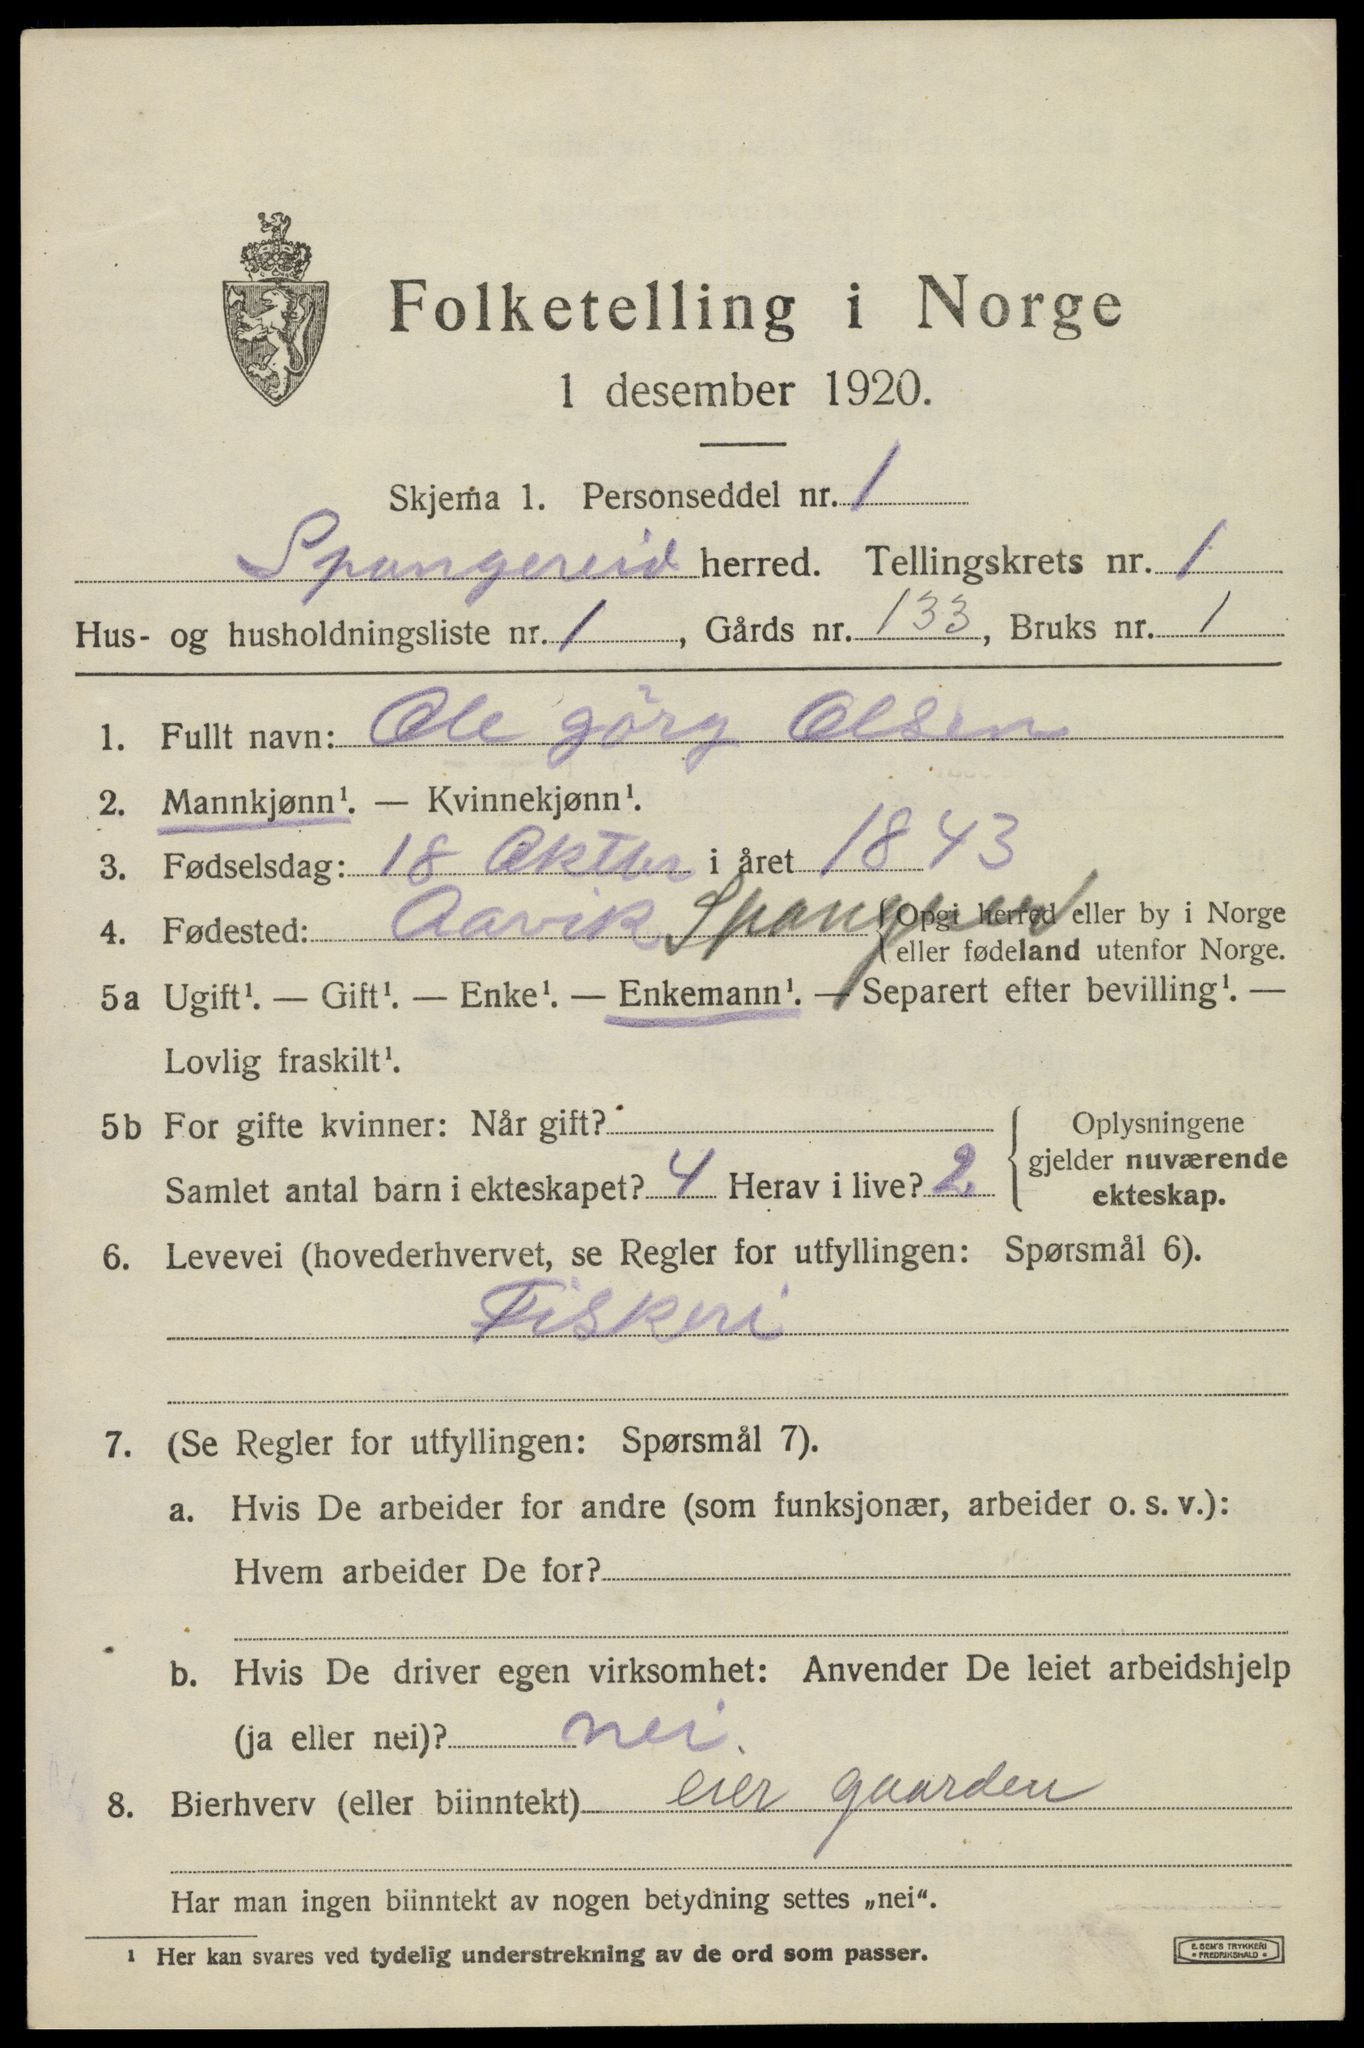 Folketelling i Norge
1 desember 1920.
Skjema 1. Personseddel nr. 1
Spangereid herred. Tellingskrets nr. 1
Hus- og husholdningsliste nr. 1, Gårds nr. 133, Bruks nr. 1
1. Fullt navn: Ole Görg Olsen
2. Mannkjønn¹. — Kvinnekjønn¹.
3. Fødselsdag: 18 Oktbr i året 1843
4. Fødested: Aavik Spangereid {Opgi herred eller by i Norge
eller fødeland utenfor Norge.
5a Ugift¹. — Gift¹. — Enke¹. — Enkemann¹. — Separert efter bevilling¹. —
Lovlig fraskilt¹.
5b For gifte kvinner: Når gift?
Samlet antal barn i ekteskapet? 4 Herav i live? 2
Oplysningene
gjelder nuværende
ekteskap.
6. Levevei (hovederhvervet, se Regler for utfyllingen: Spørsmål 6).
Fiskeri
7. (Se Regler for utfyllingen: Spørsmål 7).
a. Hvis De arbeider for andre (som funksjonær, arbeider o. s. v.):
Hvem arbeider De for?
b. Hvis De driver egen virksomhet: Anvender De leiet arbeidshjelp
(ja eller nei)? nei.
8. Bierhverv (eller biinntekt) eier gaarden
Har man ingen biinntekt av nogen betydning settes „nei“.
¹ Her kan svares ved tydelig understrekning av de ord som passer.
E. SEM'S TRYKKERI
FREDRIKSHALD